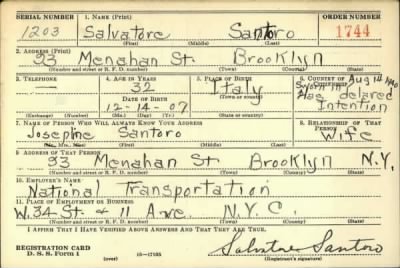 SERIAL NUMBER 1. NAME (Print) ORDER NUMBER
1203 Salvatore Santoro 1744
(First) (Middle) (Last)
2. ADDRESS (Print)
93 Menahan St. Brooklyn
(Number and street or R. F. D. number) (Town) (County) (State)
3. TELEPHONE 4. AGE IN YEARS 5. PLACE OF BIRTH 6. COUNTRY OF
— 32 Italy Aug 14 1940
DATE OF BIRTH (Town or county) Has declared
12-14-07 Intention
(Exchange) (Number) (Mo.) (Day) (Yr.) (State or country)
7. NAME OF PERSON WHO WILL ALWAYS KNOW YOUR ADDRESS 8. RELATIONSHIP OF THAT PERSON
Josephine Santoro Wife
(Mr., Mrs., Miss) (First) (Middle) (Last)
9. ADDRESS OF THAT PERSON
93 Menahan St Brooklyn N.Y.
(Number and street or R. F. D. number) (Town) (County) (State)
10. EMPLOYER'S NAME
National Transportation
11. PLACE OF EMPLOYMENT OR BUSINESS
W. 34 St. & 11 Ave. N.Y.C.
(Number and street or R. F. D. number) (Town) (County) (State)
I AFFIRM THAT I HAVE VERIFIED ABOVE ANSWERS AND THAT THEY ARE TRUE.
REGISTRATION CARD
D. S. S. Form 1 (over) 16—17105 Salvatore Santoro
(Registrant's signature)